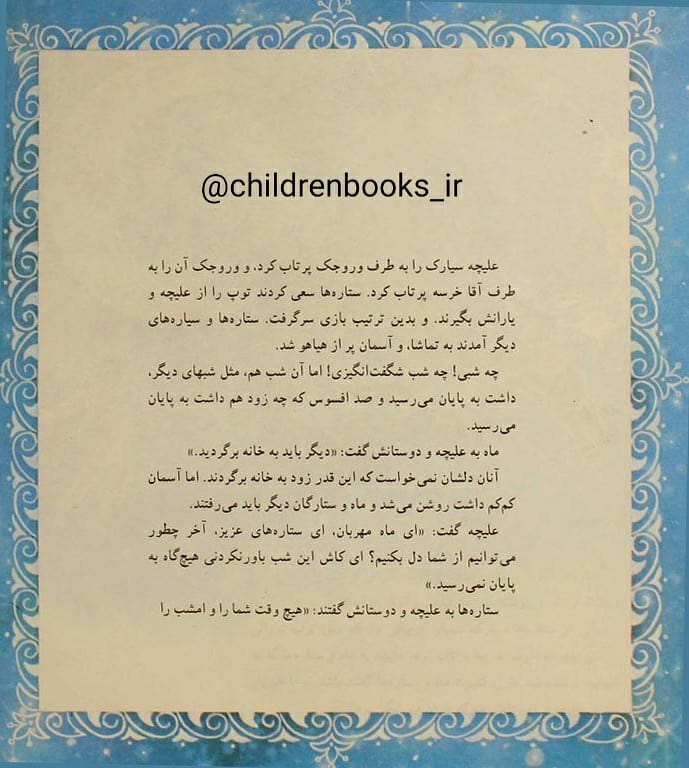 @childrenbooks_ir
علیچه سیارک را به طرف وروجک پرتاب کرد، و وروجک آن را به
طرف آقا خرسه پرتاب کرد. ستاره‌ها سعی کردند توپ را از علیچه و
یارانش بگیرند. و بدین ترتیب بازی سرگرفت. ستاره‌ها و سیاره‌های
دیگر آمدند به تماشا، و آسمان پر از هیاهو شد.
چه شبی! چه شب شگفت‌انگیزی! اما آن شب هم، مثل شبهای دیگر،
داشت به پایان می‌رسید و صد افسوس که چه زود هم داشت به پایان
می‌رسید.
ماه به علیچه و دوستانش گفت: «دیگر باید به خانه برگردید.»
آنان دلشان نمی‌خواست که این قدر زود به خانه برگردند. اما آسمان
کم‌کم داشت روشن می‌شد و ماه و ستارگان دیگر باید می‌رفتند.
علیچه گفت: «ای ماه مهربان، ای ستاره‌های عزیز، آخر چطور
می‌توانیم از شما دل بکنیم؟ ای کاش این شب باورنکردنی هیچ‌گاه به
پایان نمی‌رسید.»
ستاره‌ها به علیچه و دوستانش گفتند: «هیچ وقت شما را و امشب را